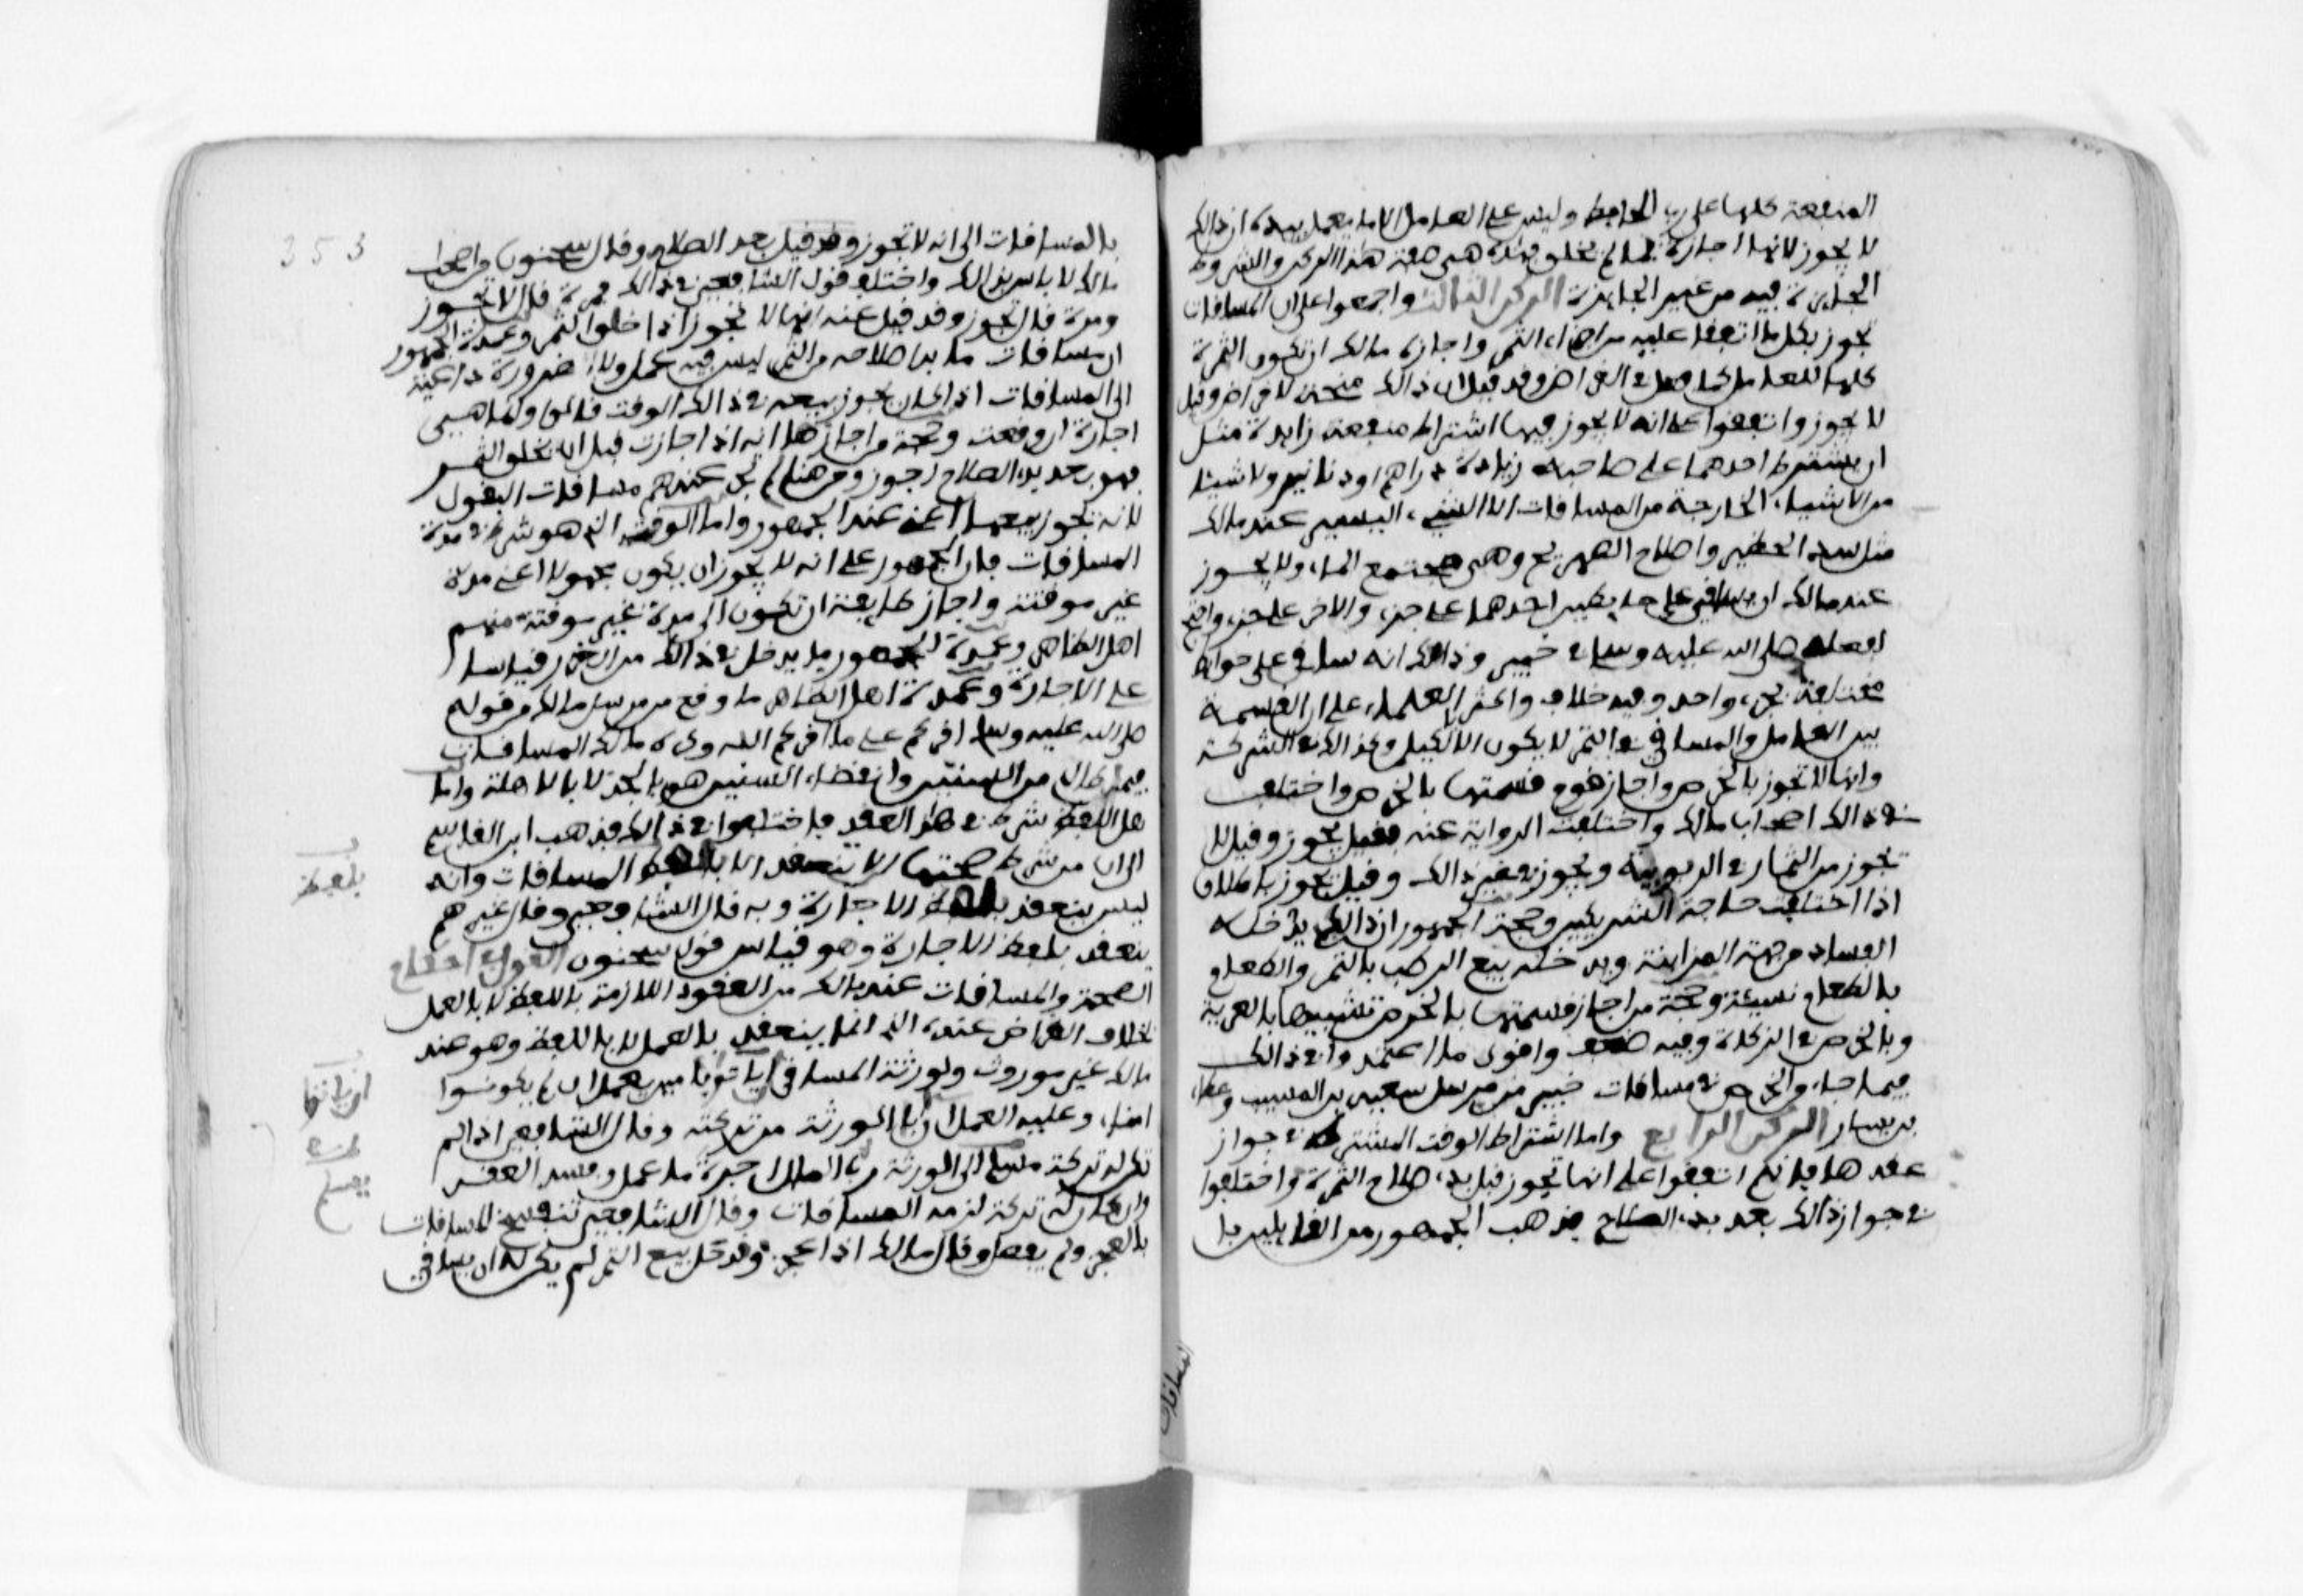 المنفعة كلها على رب الحايط وليس على العامل الا ما يعمل بيده ان ذالك
لا يجوز لانها اجارة بما لم يخلق فهذه هي صفة هذا الركن والشروط
الجايزة فيه من غير الجايزة الركن الثالث واجمعوا على ان المسافات
تجوز بكل ما اتفقا عليه من اجزاء الثمر واجاز مالك ان تكون الثمرة
كلها للعامل كما فعل في القراض وقد قيل ان ذالك منحة لا قراض وقيل
لا يجوز واتفقوا على انه لا يجوز فيها اشتراط منفعة زايدة مثل
ان يشترط احدهما على صاحبه زيادة دراهم او دنانير ولا شيئا
من الاشياء الخارجة من المسافات الا الشيء اليسير عند مالك
مثل سد الحظير واصلاح الضهريج وهي مجتمع الماء ولا يجوز
عند مالك ان يساقي على حايطين احدهما على جزء والاخر على جزء واحتج
بفعله صلى الله عليه وسلم في خيبر وذالك انه ساقى على حوايط
مختلفة بجزء واحد وفيه خلاف واكثر العلماء على ان القسمة
بين العامل والمساقي في الثمر لا يكون الا بالكيل وكذالك في الشركة
وانها لا تجوز بالخرص واجاز قوم قسمتها بالخرص واختلف
في ذالك اصحاب مالك واختلفت الرواية عنه فقيل يجوز وقيل لا
تجوز من الثمار في الربوية ويجوز في غير ذالك وقيل تجوز باطلاق
اذا اختلفت حاجة الشريكين وحجة الجمهور ان ذالك يدخله
الفساد من جهة المزابنة ويدخله بيع الرطب بالتمر والطعام
بالطعام نسيئة وحجة من اجاز قسمتها بالخرص تشبيهها بالعرية
وبالخرص في الزكاة وفيه ضعف واقوى ما اعتمدوا في ذالك
فيما جاء والخرص في مسافات خيبر من مرسل سعيد بن المسيب وعطاء
بن يسار الركن الرابع واما اشتراط الوقت المشترط في جواز
عقدها فانهم اتفقوا على انها تجوز قبل بدء صلاح الثمرة واختلفوا
في جواز ذالك بعد بدء الصلاح فذهب الجمهور من القايلين با
353
بالمسافات الى انه لا تجوز وقد قيل بعد الصلاح وقال سحنون من اصحاب
مالك لا باس بذالك واختلف قول الشافعي في ذالك فمرة قال لا تجوز
ومرة قال تجوز وقد قيل عنه انها لا تجوز اذا خلق الثمر وعمدة الجمهور
ان مسافات ما بدا صلاحه من الثمر ليس فيه عمل ولا ضرورة داعية
الى المسافات اذ كان يجوز بيعه في ذالك الوقت قالوا وانما هي
اجارة ان وقعت وحجة من اجازها انه اذا جازت قبل ان يخلق الثمر
فهو بعد بدء الصلاح اجوز ومن هنا لم تجز عندهم مسافات البقول
لانه تجوز بيعها اعني عند الجمهور واما الوقت الذي هو شرط في مدة
المسافات فان الجمهور على انه لا يجوز ان يكون مجهولا اعني مدة
غير موقتة واجاز طايفة ان تكون الى مدة غير موقتة منهم
اهل الظاهر وعمدة الجمهور ما يدخل في ذالك من الغرر قياسا
على الاجارة وعمدة اهل الظاهر ما وقع من مرسل مالك من قوله
صلى الله عليه وسلم اقركم على ما اقركم الله وكره مالك المسافات
فيما طال من السنين وانقضاء السنين هو بالجد لا بالاهلة واما
هل اللفظ شرط في هذا العقد فاختلفوا في ذالك فذهب ابن القاسم
الى ان من شرط صحتها الا تنعقد الا بلفظ المسافات وانه
ليس ينعقد بلفظ الاجارة وبه قال الشافعي وقال غيرهم
ينعقد بلفظ الاجارة وهو قياس قول سحنون القول في احكام
الصحة والمسافات عند مالك من العقود اللازمة باللفظ لا بالعمل
بخلاف القراض عنده الذي انما ينعقد بالعمل لا باللفظ وهو عند
مالك عقد موروث ولورثة المساقي ان ياتوا بامين يعمل ان لم يكونوا
امناء وعليه العمل ان ابى الورثة من تركته وقال الشافعي اذا لم
تكن له تركة سلم الى الورثة رب المال اجرة ما عمل وفسد العقد
وان كان له تركة لزمه المسافات وقال الشافعي تنفسخ المسافات
بالعجز ولم يفصل وقال مالك اذا عجز وقد حل بيع الثمر لم يكن له ان يساقي
بلفظ
ان ياتوا
المسافات